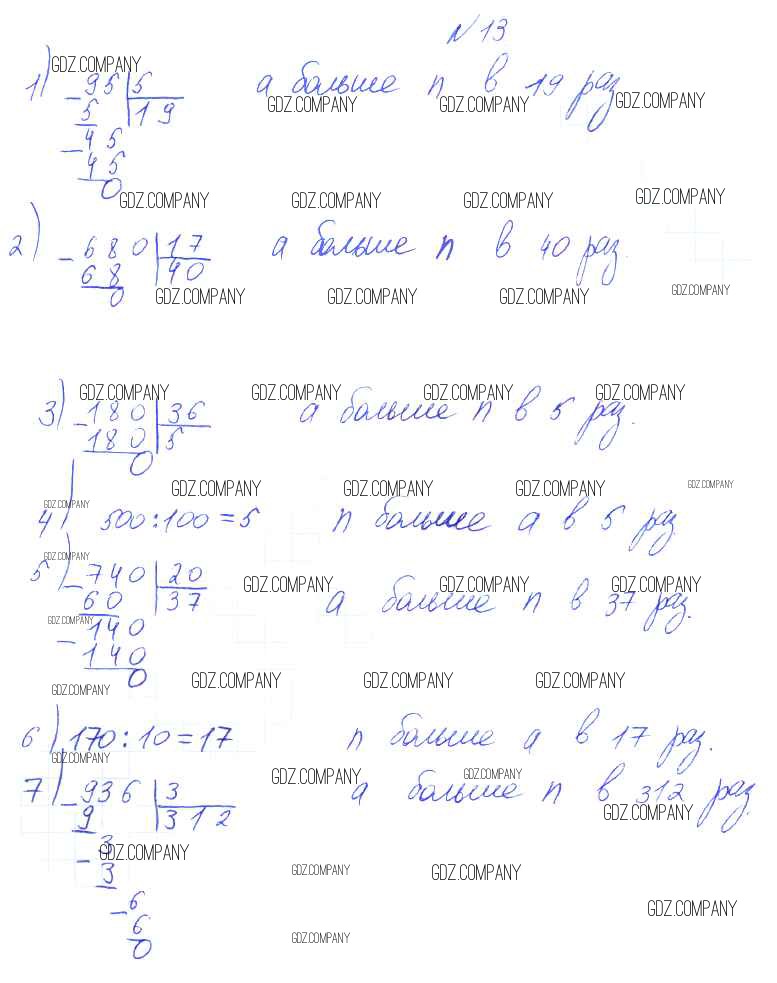 N 13
1) GDZ.COMPANY
95 5 а больше n в 19 раз
5 19 GDZ.COMPANY GDZ.COMPANY GDZ.COMPANY
45
45
0 GDZ.COMPANY GDZ.COMPANY GDZ.COMPANY GDZ.COMPANY
2) 680 17 а больше n в 40 раз.
68 40
0 GDZ.COMPANY GDZ.COMPANY GDZ.COMPANY GDZ.COMPANY
GDZ.COMPANY GDZ.COMPANY GDZ.COMPANY GDZ.COMPANY
3) 180 36 а больше n в 5 раз.
180 5
0
GDZ.COMPANY GDZ.COMPANY GDZ.COMPANY GDZ.COMPANY
GDZ.COMPANY
4) 500:100=5 n больше а в 5 раз
GDZ.COMPANY
5) 740 20 GDZ.COMPANY GDZ.COMPANY GDZ.COMPANY
60 37 а больше n в 37 раз.
GDZ.COMPANY
140
140
0 GDZ.COMPANY GDZ.COMPANY GDZ.COMPANY GDZ.COMPANY
6) 170:10=17 n больше а в 17 раз.
GDZ.COMPANY GDZ.COMPANY GDZ.COMPANY
7) 936 3 а больше n в 312 раз.
9 312 GDZ.COMPANY
3
GDZ.COMPANY
3 GDZ.COMPANY GDZ.COMPANY
6 GDZ.COMPANY
6
0 GDZ.COMPANY